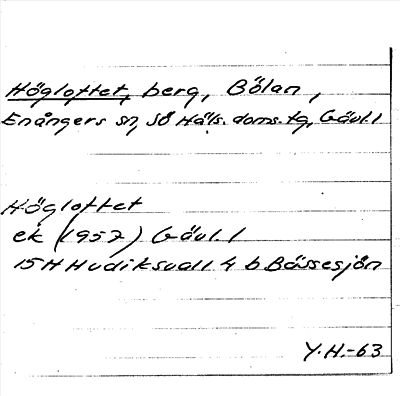 Högloftet, berg, Bölan,
Enångers sn, Sö Häls. doms. tg, Gävl. l
Högloftet
ek (1957) Gävl. l
15H Hudiksvall 4 b Bässesjön
Y.H.-63